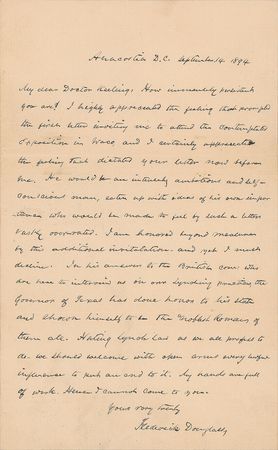 Anacostia D.C. September 14. 1894
My dear Doctor Keeling: How immensely persistent
you are! I highly appreciated the feeling that prompted
the first letter inviting me to attend the contemplated
Exposition in Waco and I certainly appreciate
the feeling that dictated your letter now before
me. He would be an intensely ambitious and self-
conscious man, eaten up with ideas of his own impor
tance who would be made to feel by such a letter
vastly overrated. I am honored beyond measure
by this additional invitation. and yet I must
decline. In his answer to the British
who are here to intervene in our own Lynching practices the
Governor of Texas has done honor to his state
and shown himself to be the Noblest Roman of
them all. Hating Lynch Law as we all profess to
do. we should welcome with open arms every
influence to put an end to it. My hands are full
of work. Hence I cannot come to you.
Yours very truly
Frederick Douglass